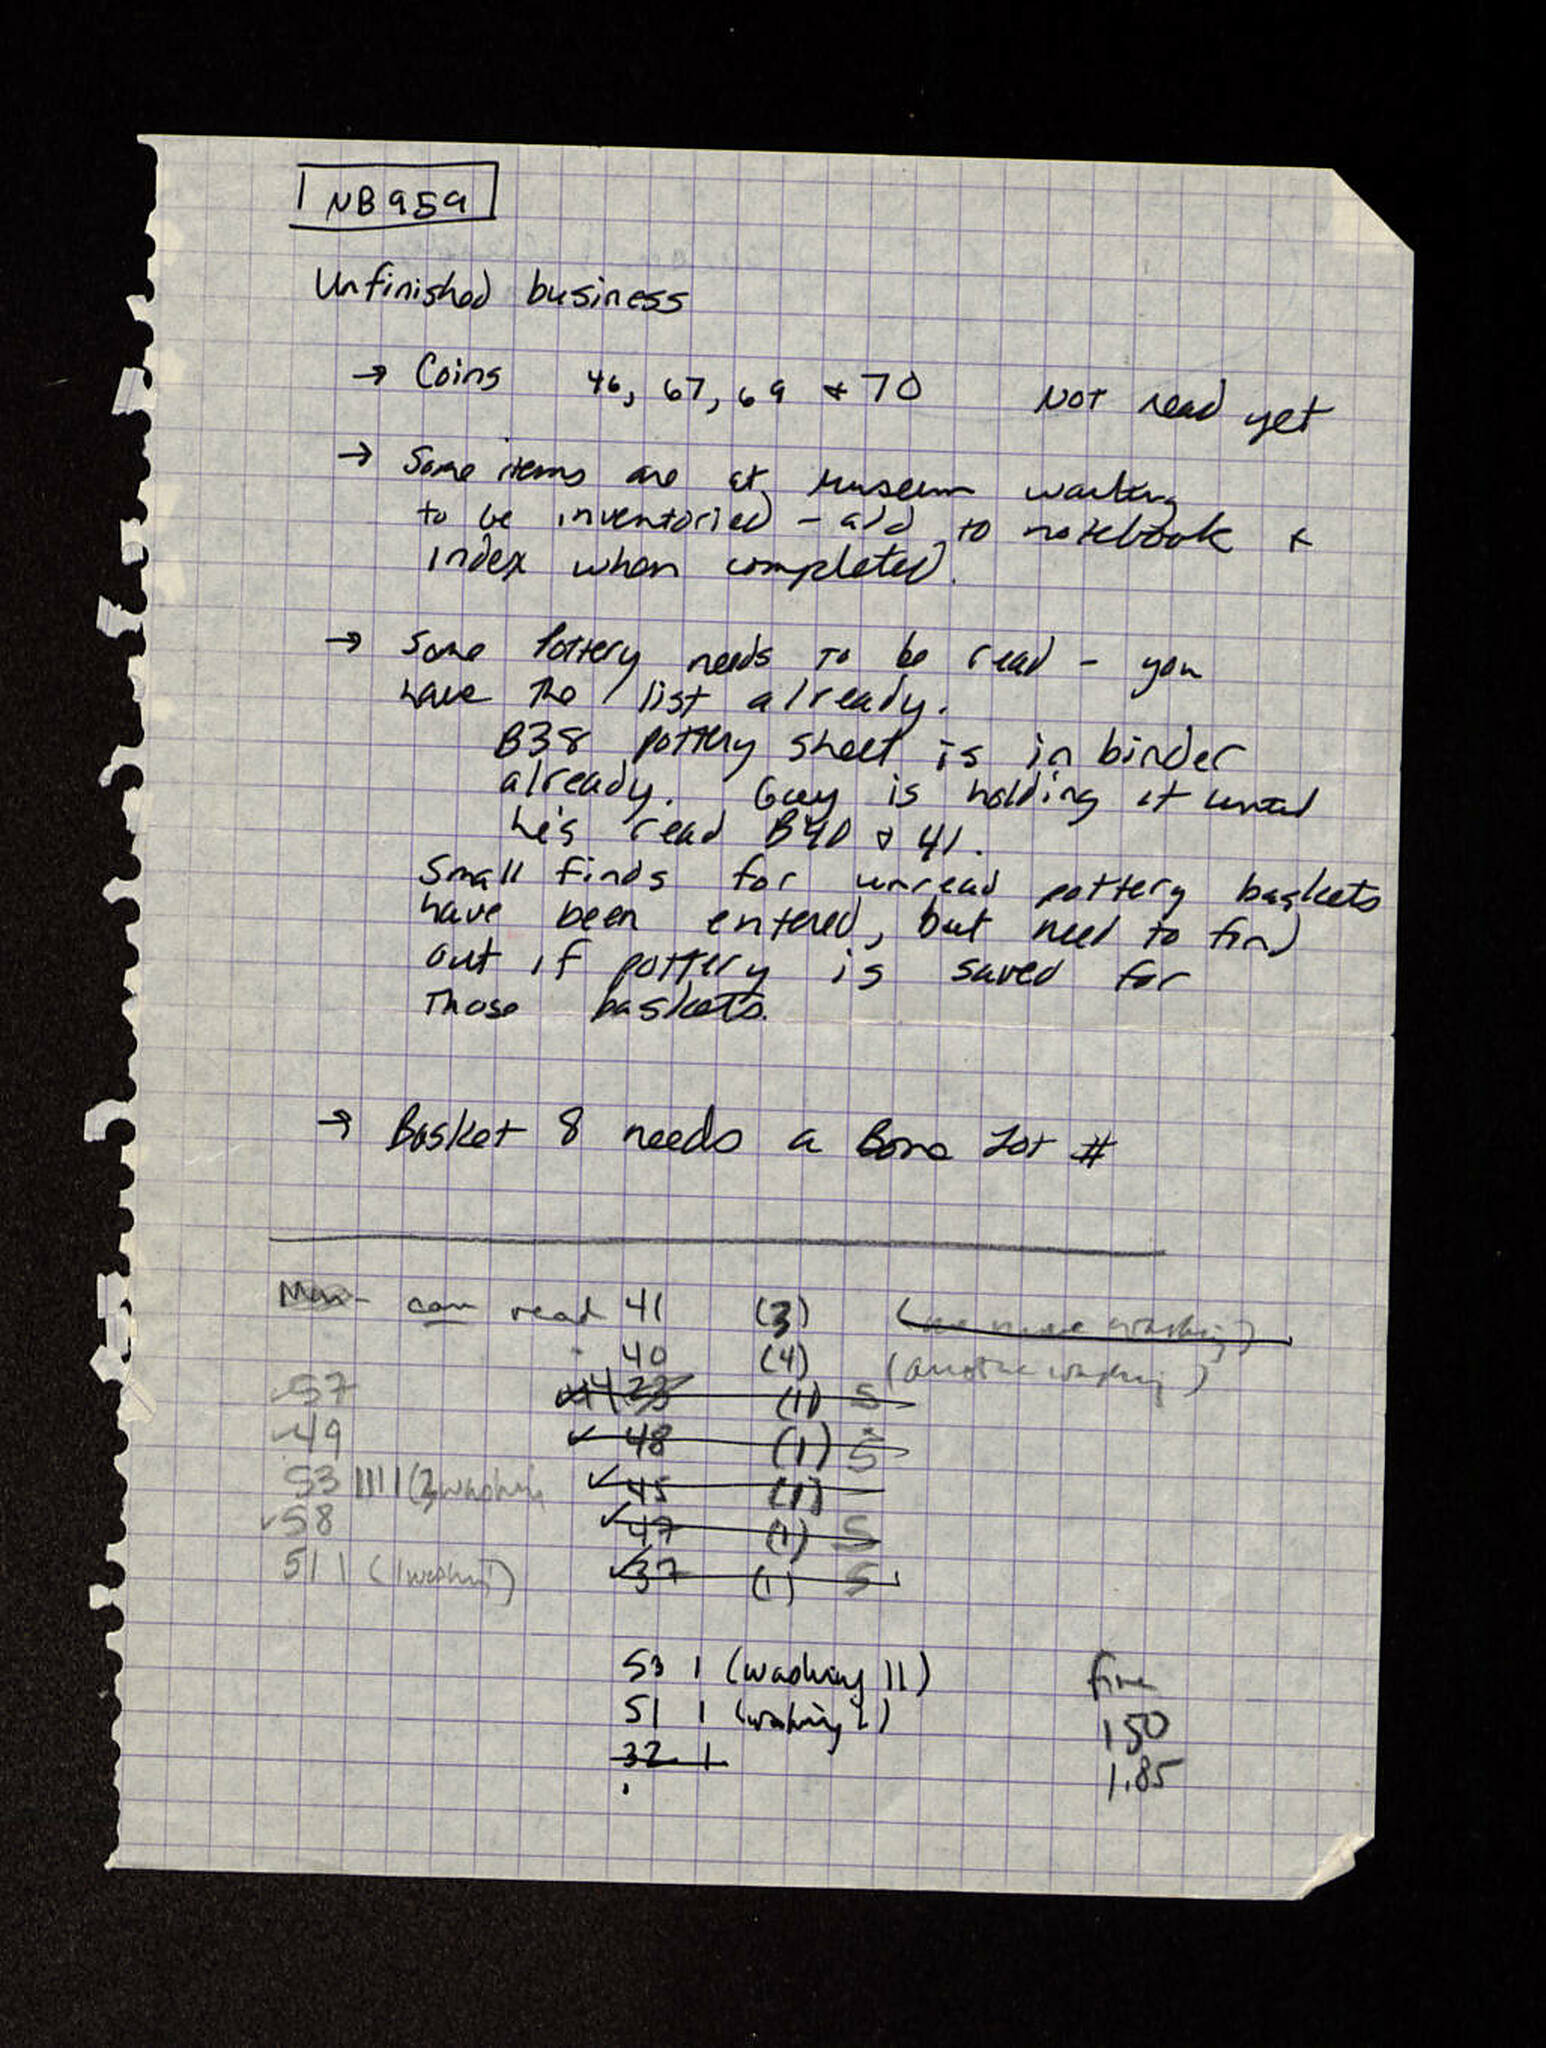 NB959
Unfinished business
→ Coins 46, 67, 69 & 70 Not read yet
→ Some items are at Museum waiting
to be inventoried - add to notebook &
index when completed.
→ Some Pottery needs to be read - you
have the list already.
B38 pottery sheet is in binder
already. Guy is holding it until
he's read B40 & 41.
Small finds for unread pottery baskets
have been entered, but need to find
out if pottery is saved for
those baskets.
→ Basket 8 needs a Bone Lot #
can read 41 (3) (one more washing)
40 (4) (another washing)
57 (1) S
49 ✓ 48 (1) S
53 |||| (2 washing ✓ 45 (1)
✓58 ✓ 47 (1) S
51 | (1 washing) ✓ 37 (1) S
53 | (washing ||)
51 | (washing 1) 150
32 | 1.85